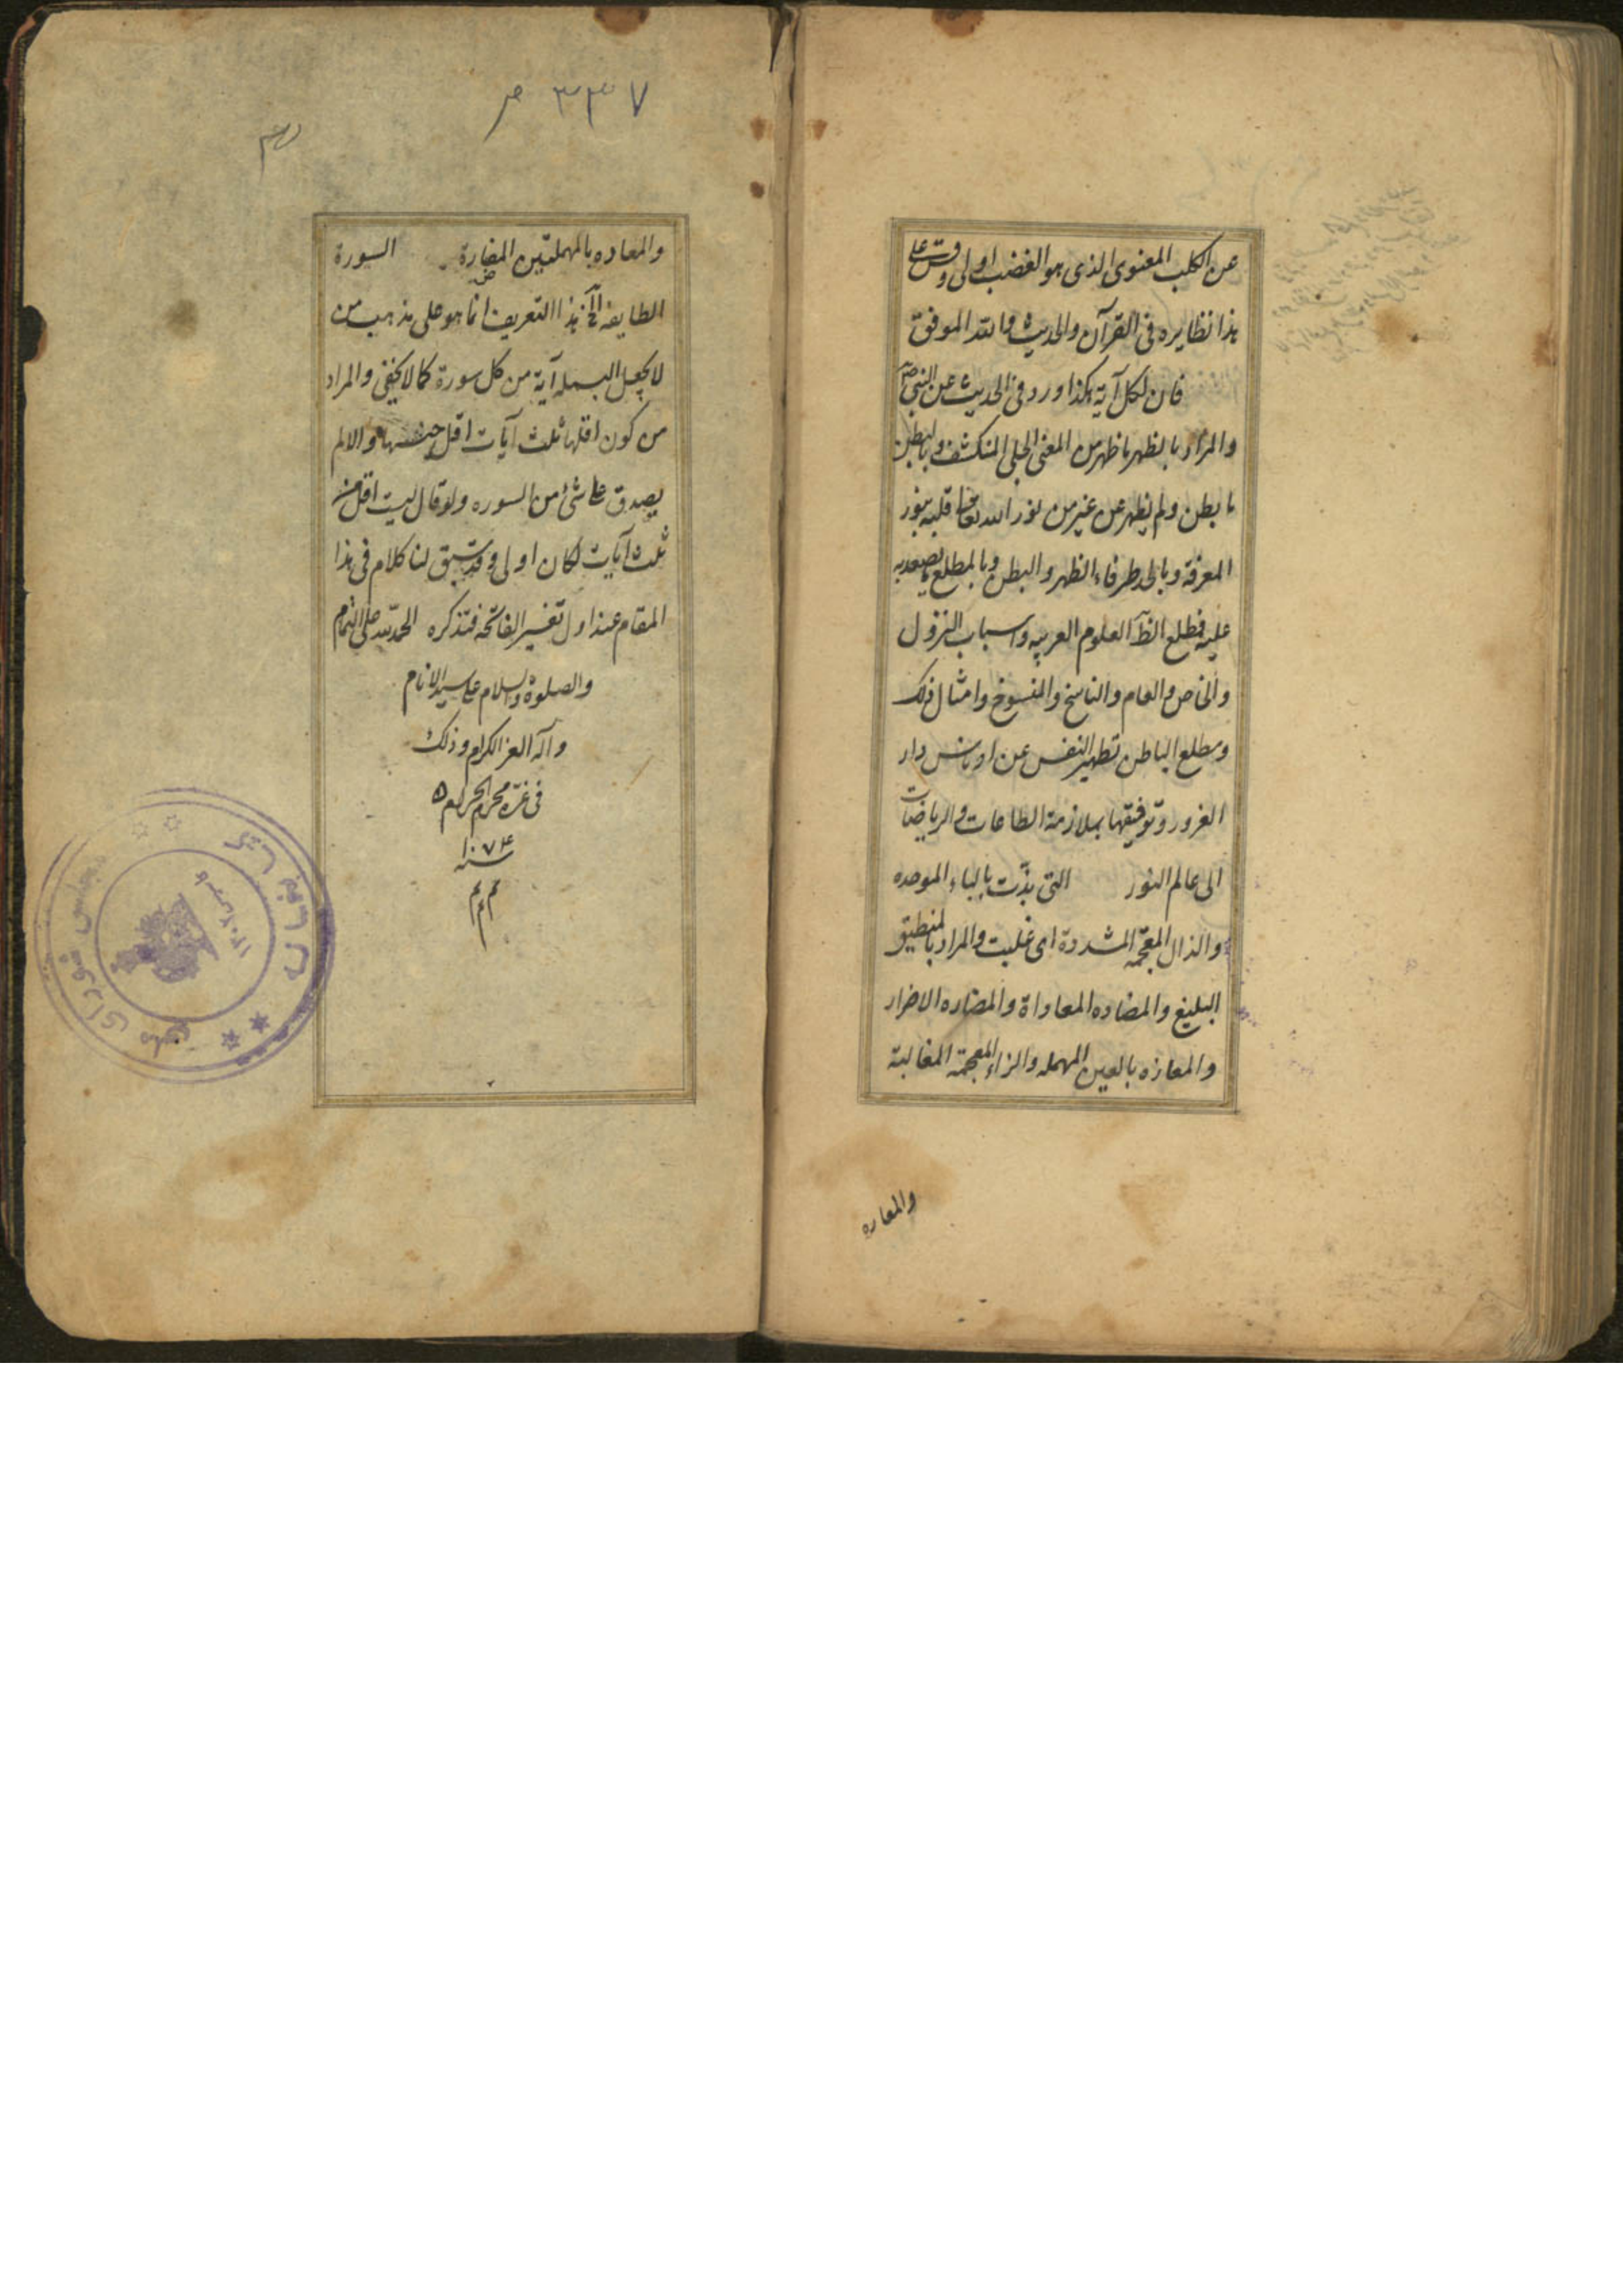 عن الكلب المعنوى الذى هو الغضب اولى وقس على
هذا نظايره فى القرآن والحديث والله الموفق
فان لكل آية هكذا ورد فى الحديث عن النبى ص
والمراد بالظهر ما ظهر من المعنى الجلى المنكشف وبالبطن
ما بطن ولم يظهر عن غير من نور الله تعالى قلبه بنور
المعرفة وبالحد طرفاء الظهر والبطن وبالمطلع ما يصعد به
عليه فمطلع الظاهر العلوم العربيه واسباب النزول
والخاص والعام والناسخ والمنسوخ وامثال ذلك
ومطلع الباطن تطهير النفس عن ادناس دار
الغرور وتوفيقها بملازمة الطاعات والرياضات
الى عالم النور التى بذّت بالباء الموحده
والذال المعجمه المشددة اى غلبت والمراد بالمنطيق
البليغ والمضاده المعاداة والمضاره الاضرار
والمعازه بالعين المهمله والزاء المعجمة المغالبة
والمعاره
٣٣٧
والمعاده بالمهملتين المضارة السورة
الطايفه الخ هذا التعريف انما هو على مذهب من
لا يجعل البسمله آية من كل سورة كما لا يخفى والمراد
من كون اقلها ثلث آيات اقل جنسها والا لم
يصدق على شئ من السوره ولو قال ليست اقل من
ثلث آيات لكان اولى وقد سبق لنا كلام فى هذا
المقام عند اول تفسير الفاتحه فتذكره الحمد لله على التمام
والصلوة والسلام على سيد الانام
وآله الغر الكرام وذلك
فى غرّه محرم الحرام
سنه ١٠٧٤
م م م
كتابخانه مجلس شوراى ملى
١٣٠٢